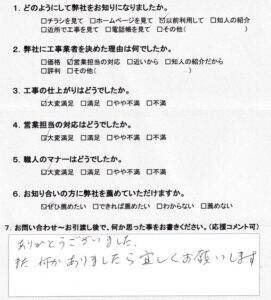 1. どのようにして弊社をお知りになりましたか。
□チラシを見て □ホームページを見て ☑以前利用して □知人の紹介
□近所で工事を見て □電話帳を見て □その他( )
2. 弊社に工事業者を決めた理由は何でしたか。
□価格 ☑営業担当の対応 □近いから □知人の紹介だから
□評判 □その他( )
3. 工事の仕上がりはどうでしたか。
☑大変満足 □満足 □やや不満 □不満
4. 営業担当の対応はどうでしたか。
☑大変満足 □満足 □やや不満 □不満
5. 職人のマナーはどうでしたか。
☑大変満足 □満足 □やや不満 □不満
6. お知り合いの方に弊社を薦めていただけますか。
☑ぜひ薦めたい □できれば薦めたい □わからない □薦めない
7. お問い合わせ〜お引渡し後で、何か思った事をお書きください。(応援コメント可)
ありがとうございました。
また、何かありましたら宜しくお願いします